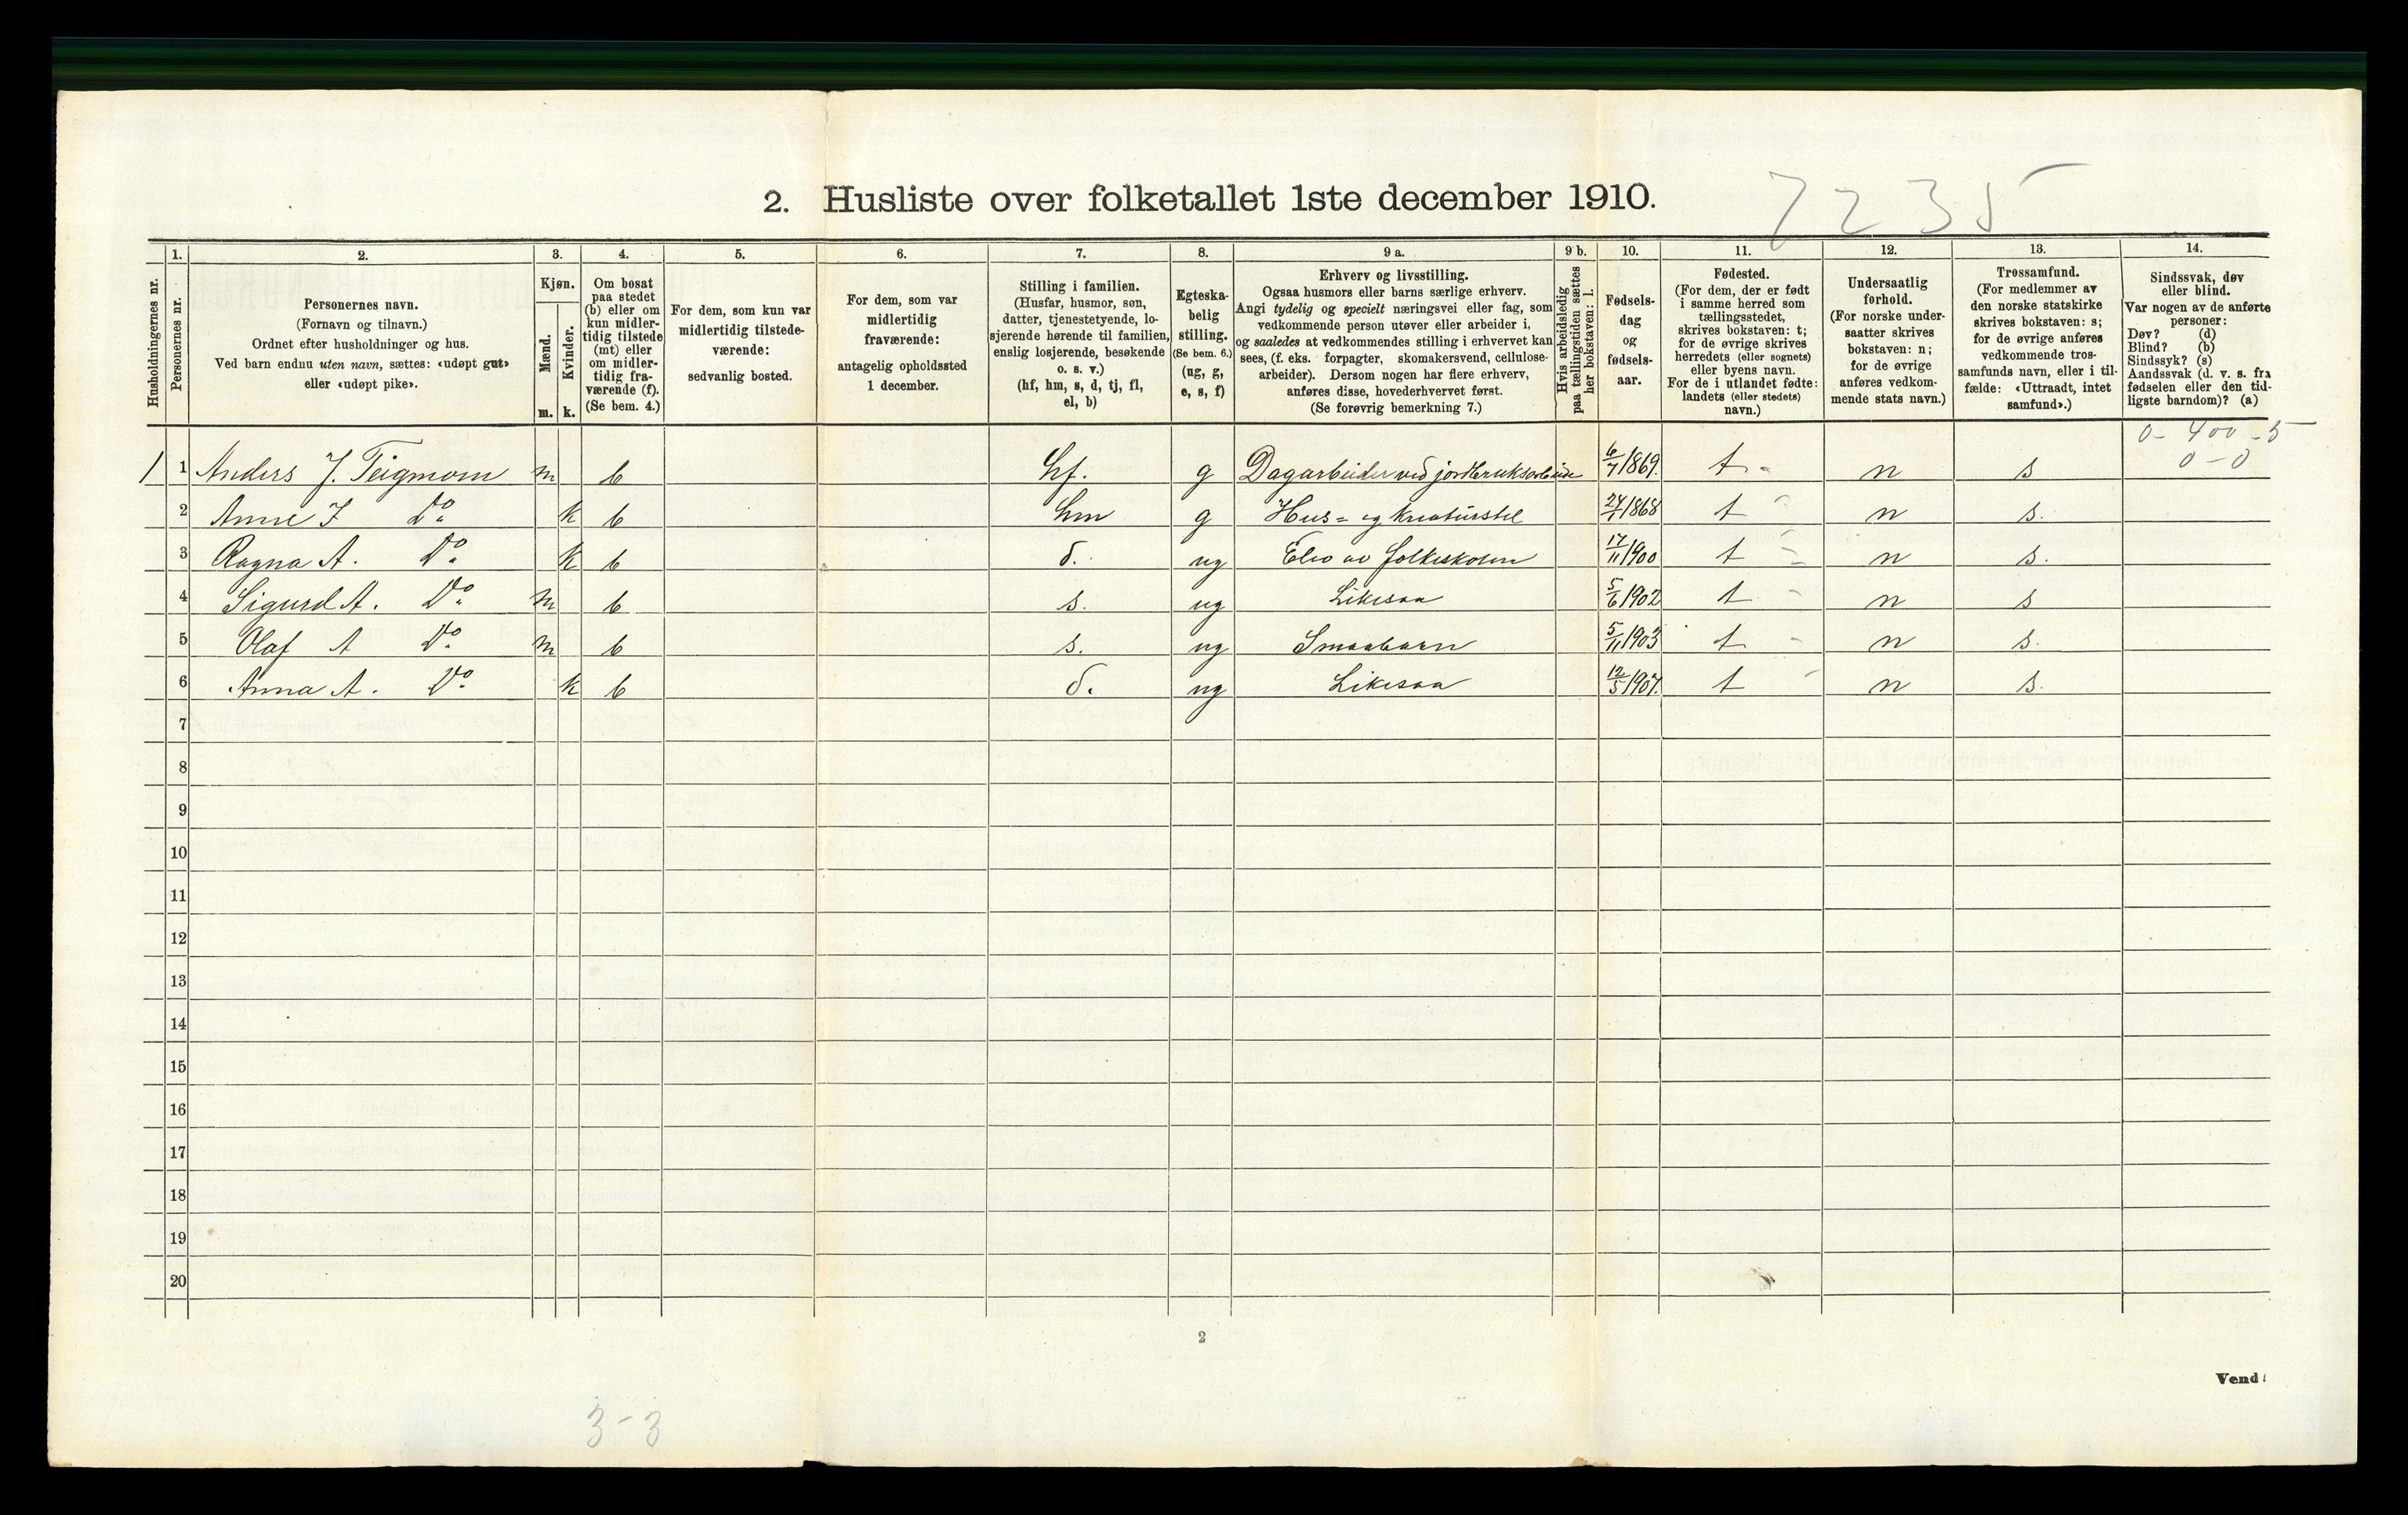 2. Husliste over folketallet 1ste december 1910.
7235
Husholdningernes nr.
1.
Personernes nr.
2.
Personernes navn.
(Fornavn og tilnavn.)
Ordnet efter husholdninger og hus.
Ved barn endnu uten navn, sættes: «udøpt gut»
eller «udøpt pike».
3.
Kjøn.
Mænd.
m.
Kvinder.
k.
4.
Om bosat
paa stedet
(b) eller om
kun midler-
tidig tilstede
(mt) eller
om midler-
tidig fra-
værende (f).
(Se bem. 4.)
5.
For dem, som kun var
midlertidig tilstede-
værende:
sedvanlig bosted.
6.
For dem, som var
midlertidig
fraværende:
antagelig opholdssted
1 december.
7.
Stilling i familien.
(Husfar, husmor, søn,
datter, tjenestetyende, lo-
sjerende hørende til familien,
enslig losjerende, besøkende
o. s. v.)
(hf, hm, s, d, tj, fl,
el, b)
8.
Egteska-
belig
stilling.
(Se bem. 6.)
(ug, g,
e, s, f)
9 a.
Erhverv og livsstilling.
Ogsaa husmors eller barns særlige erhverv.
Angi tydelig og specielt næringsvei eller fag, som
vedkommende person utøver eller arbeider i,
og saaledes at vedkommendes stilling i erhvervet kan
sees, (f. eks. forpagter, skomakersvend, cellulose-
arbeider). Dersom nogen har flere erhverv,
anføres disse, hovederhvervet først.
(Se forøvrig bemerkning 7.)
9 b.
Hvis arbeidsledig
paa tællingstiden sættes
her bokstaven: l.
10.
Fødsels-
dag
og
fødsels-
aar.
11.
Fødested.
(For dem, der er født
i samme herred som
tællingsstedet,
skrives bokstaven: t;
for de øvrige skrives
herredets (eller sognets)
eller byens navn.
For de i utlandet fødte:
landets (eller stedets)
navn.)
12.
Undersaatlig
forhold.
(For norske under-
saatter skrives
bokstaven: n;
for de øvrige
anføres vedkom-
mende stats navn.)
13.
Trossamfund.
(For medlemmer av
den norske statskirke
skrives bokstaven: s;
for de øvrige anføres
vedkommende tros-
samfunds navn, eller i til-
fælde: «Uttraadt, intet
samfund».)
14.
Sindssvak, døv
eller blind.
Var nogen av de anførte
personer:
Døv? (d)
Blind? (b)
Sindssyk? (s)
Aandssvak (d. v. s. fra
fødselen eller den tid-
ligste barndom)? (a)
0- 400 -5
0-0
1 1 Anders J. Teigmom m b hf. g Dagarbeider ved jordbruksarbeide 6/7 1869. t - n s
2 Anne J Do k b hm g Hus= og kreaturstel 24/1 1868 t - n s.
3 Ragna A. Do k b d. ug Elev av folkeskolen 17/11 1900 t - n s.
4 Sigurd A. Do m b s. ug Likesaa 5/6 1902 t - n s
5 Olaf A Do m b s. ug Smaabarn 5/11 1903 t - n s.
6 Anna A. Do k b d. ug Likesaa 12/5 1907. t - n s.
7
8
9
10
11
12
13
14
15
16
17
18
19
20
2
Vend!
3-3